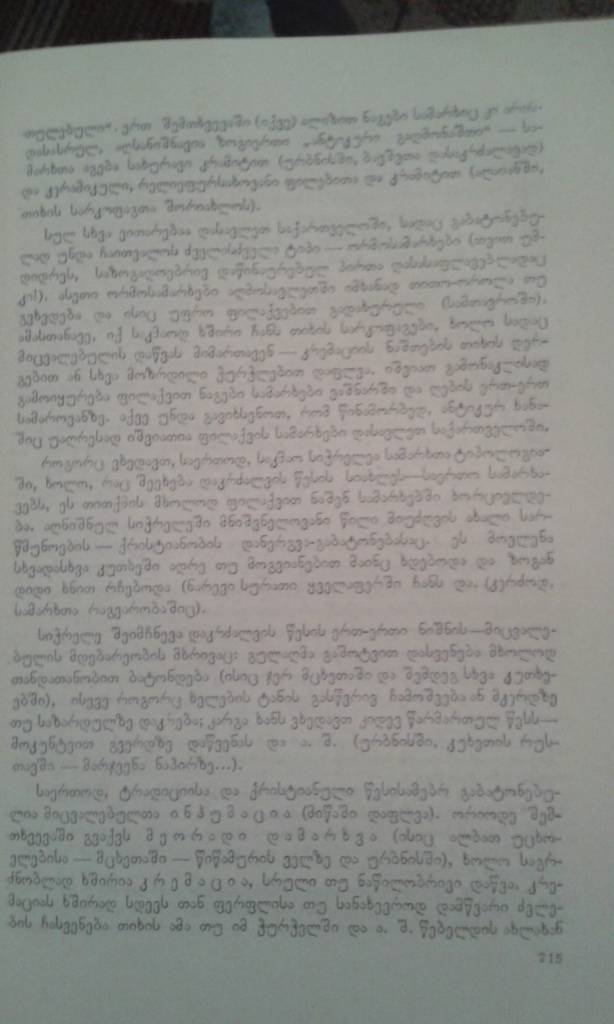 თულებული“. ერთ შემთხვევაში (იქვე) ალიზით ნაგები სამარხიც კი არის.
დასასრულ, აღსანიშნავია ზოგიერთი „ანტიკური გადმონაშთი“ — სა-
მარხთა აგება სახურავი კრამიტით (ურბნისში, ბავშვთა დასაკრძალავად)
და კერამიკული, რელიეფურსახოვანი ფილებითა და კრამიტით (
თიხის სარკოფაგთა შორიახლოს).
სულ სხვა ვითარებაა დასავლეთ საქართველოში, სადაც გაბატონებუ-
ლად უნდა ჩაითვალოს ძველისძველი ტიპი — ორმოსამარხები (თვით უმ-
დიდრეს, საზოგადოებრივ დაწინაურებულ პირთა დასასაფლავებლადაც
კი!). ასეთი ორმოსამარხები აღმოსავლეთში იშვიათად თითო-ოროლა თუ
გვხვდება და ისიც უფრო ფილაქვებით გადახურული (სამთავროში).
ამასთანავე, იქ საკმაოდ ხშირი ჩანს თიხის სარკოფაგები, ხოლო სადაც
მიცვალებულის დაწვას მიმართავენ — კრემაციის ნაშთების თიხის დერ-
გებით ან სხვა მოზრდილი ჭურჭლებით დაფლვა. იშვიათ გამონაკლისად
გამოიყურება ფილაქვით ნაგები სამარხები ვაშნარში და ღების ერთ-ერთ
სამაროვანზე. აქვე უნდა გავიხსენოთ, რომ წინამორბედ, ანტიკურ ხანა-
შიც უაღრესად იშვიათია ფილაქვის სამარხები დასავლეთ საქართველოში.
როგორც ვხედავთ, საერთოდ, საკმაო სიჭრელეა სამარხთა ტიპოლოგია-
ში, ხოლო, რაც შეეხება დაკრძალვის წესის სიახლეს—საერთო სამარხა-
ვებს, ეს თითქმის მხოლოდ ფილაქვით ნაშენ სამარხებში ხორციელდე-
ბა. აღნიშნულ სიჭრელეში მნიშვნელოვანი წილი მიუძღვის ახალი სარ-
წმუნოების — ქრისტიანობის დანერგვა-გაბატონებასაც. ეს მოვლენა
სხვადასხვა კუთხეში ადრე თუ მოგვიანებით მაინც ხდებოდა და ზოგან
დიდი ხნით რჩებოდა (ნარევი სურათი ყველაფერში ჩანს და, (კერძოდ,
სამარხთა რაგვარობაშიც).
სიჭრელე შეიმჩნევა დაკრძალვის წესის ერთ-ერთი ნიშნის—მიცვალე-
ბულის მდებარეობის მხრივაც: გულაღმა გაშოტვით დასვენება მხოლოდ
თანდათანობით ბატონდება (ისიც ჯერ მცხეთაში და შემდეგ სხვა კუთხე-
ებში), ისევე როგორც ხელების ტანის გასწვრივ ჩამოშვება ან მკერდზე
თუ საზარდულზე დაკრება; კარგა ხანს ვხედავთ კიდევ წარმართულ წესს—
მოკუნტვით გვერდზე დაწვენას და ა. შ. (ურბნისში, კუხეთის რუს-
თავში — მარჯვენა ნაპირზე...).
საერთოდ, ტრადიციისა და ქრისტიანული წესისამებრ გაბატონებუ-
ლია მიცვალებულთა ი ნ ჰ უ მ ა ც ი ა (მიწაში დაფლვა). ორიოდე შემ-
თხვევაში გვაქვს მ ე ო რ ა დ ი დ ა მ ა რ ხ ვ ა (ისიც ალბათ უცხო-
ელებისა — მცხეთაში — წიწამურის ველზე და ურბნისში), ხოლო საგრ-
ძნობლად ხშირია კ რ ე მ ა ც ი ა, სრული თუ ნაწილობრივი დაწვა. კრე-
მაციას ხშირად სდევს თან ფერფლისა თუ სანახევროდ დამწვარი ძვლე-
ბის ჩასვენება თიხის ამა თუ იმ ჭურჭელში და ა. შ. წებელდის ახლახან
215